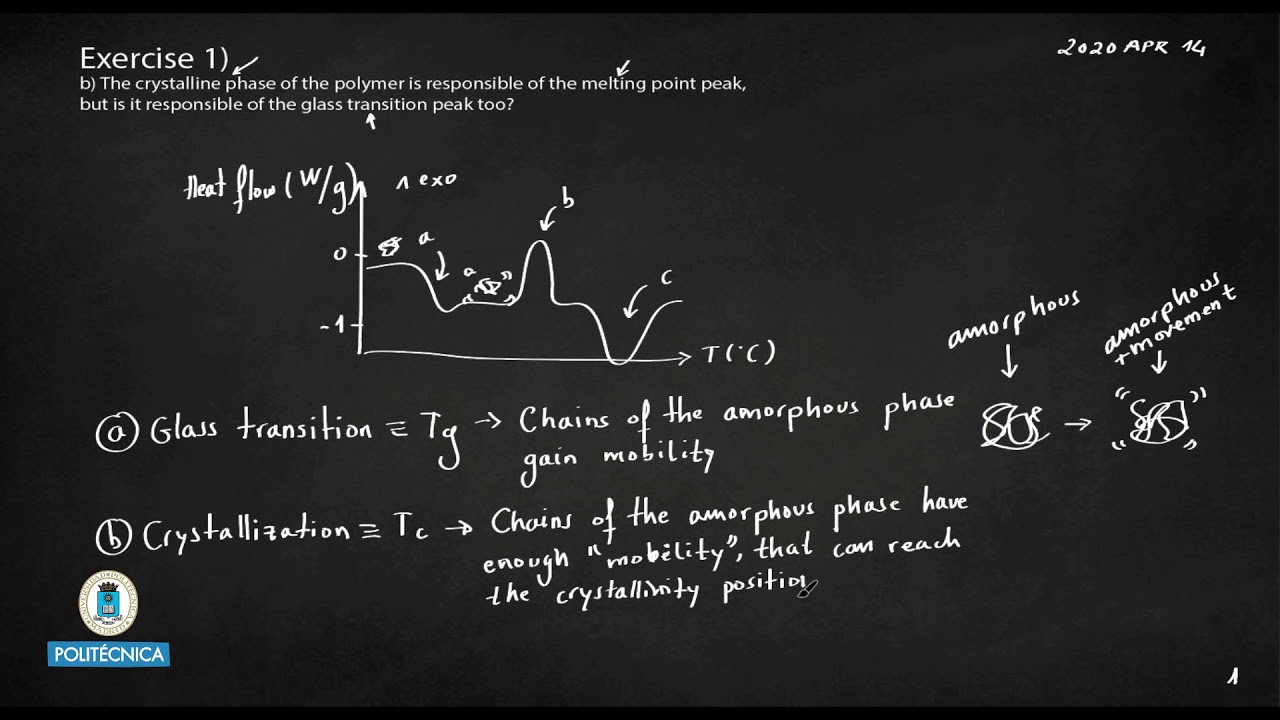 2020 APR 14
Exercise 1)
b) The crystalline phase of the polymer is responsible of the melting point peak,
but is it responsible of the glass transition peak too?
Heat flow (W/g)
↑ exo
b
a
0
c
-1
T(°C)
amorphous
amorphous
+ movement
(a) Glass transition ≡ Tg → Chains of the amorphous phase
gain mobility
(b) Crystallization ≡ Tc → Chains of the amorphous phase have
enough "mobility", that can reach
the crystallinity position
POLITÉCNICA
1